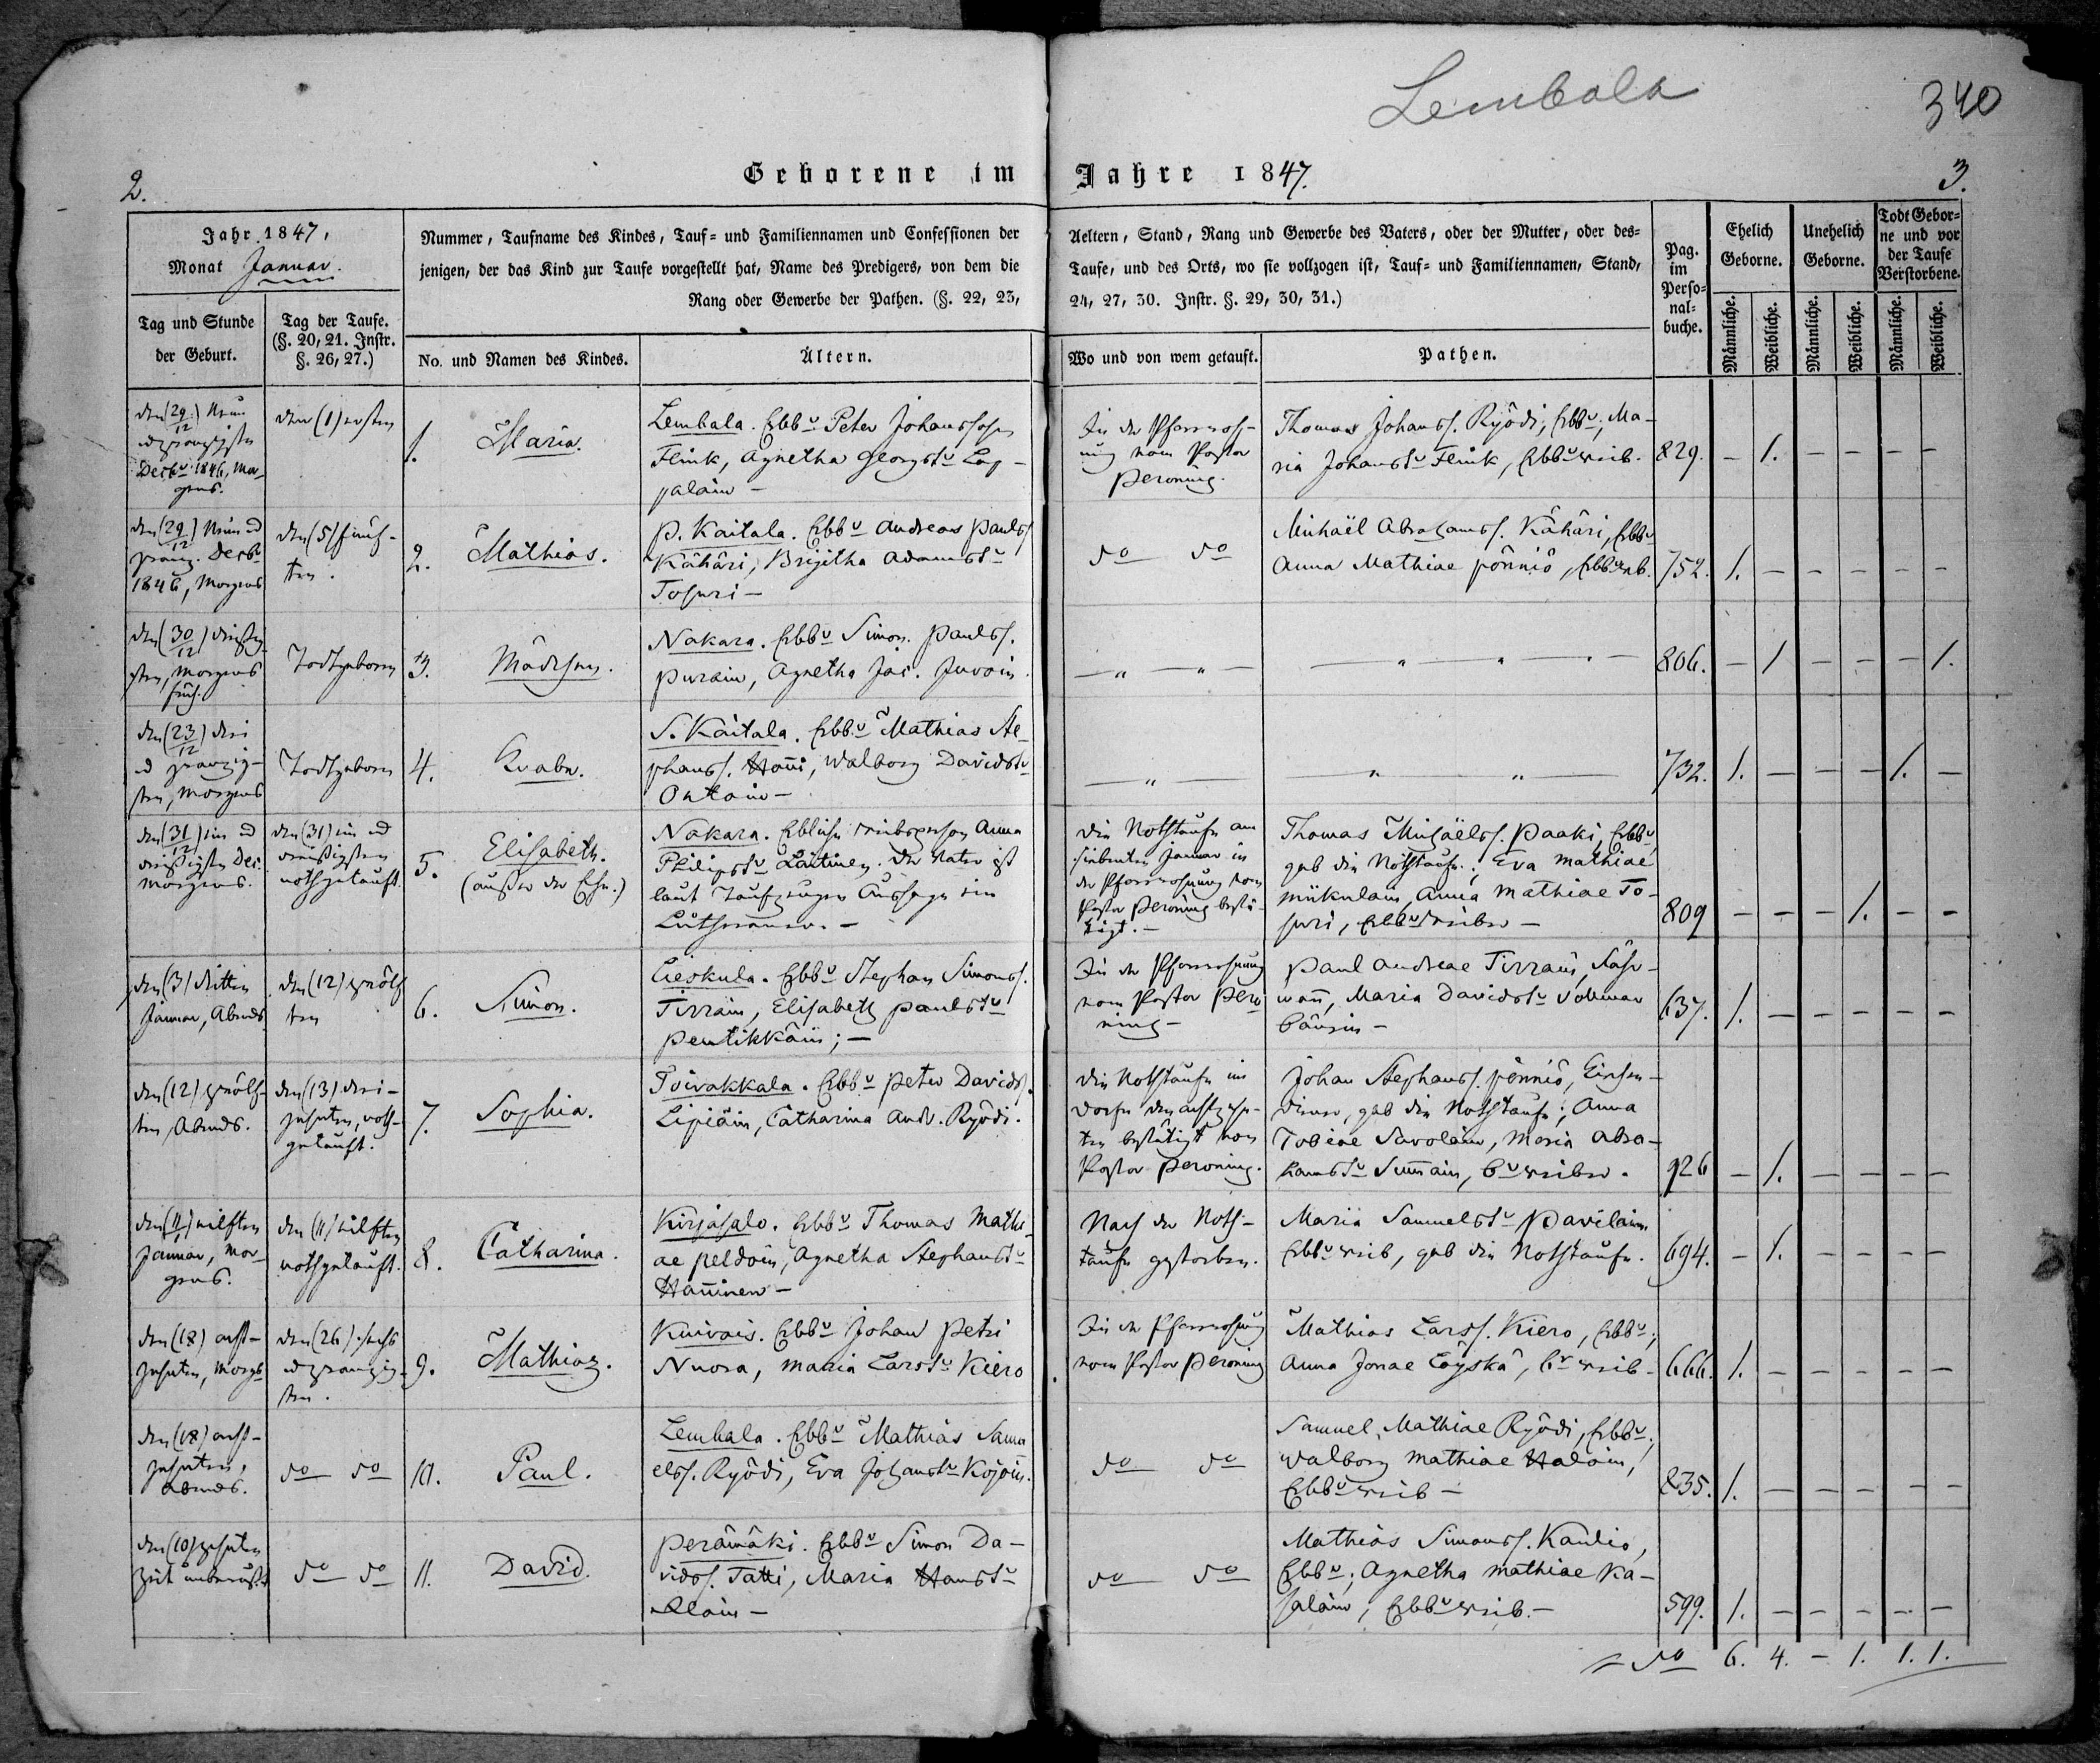 Lembala
340
2.
Geborene im Jahre 1847.
3.
Jahr 1847,
Monat Januar.
Tag und Stunde
der Geburt.
Tag der Taufe.
(§. 20, 21. Instr.
§. 26, 27.)
Nummer, Taufname des Kindes, Tauf= und Familiennamen und Confessionen der
jenigen, der das Kind zur Taufe vorgestellt hat, Name des Predigers, von dem die
Rang oder Gewerbe der Pathen. (§. 22, 23,
No. und Namen des Kindes.
Ältern.
Aeltern, Stand, Rang und Gewerbe des Vaters, oder der Mutter, oder des=
Taufe, und des Orts, wo sie vollzogen ist, Tauf= und Familiennamen, Stand,
24, 27, 30. Instr. §. 29, 30, 31.)
Wo und von wem getauft.
Pathen.
Pag.
im
Perso=
nal=
buche.
Ehelich
Geborne.
Unehelich
Geborne.
Todt Gebor=
ne und vor
der Taufe
Verstorbene.
Männliche.
Weibliche.
Männliche.
Weibliche.
Männliche.
Weibliche.
den (29/12) Neun
Decbr 1846, Mor-
gens.
den (1) ersten
1. Maria.
Lembala. Ebbr Peter Johanssohn
Flink, Agnetha Georgstr Lap-
palain –
In der Pfarrwoh-
nung vom Pastor
Peroning.
Thomas Johanss. Ryödi, Ebbr; Ma-
ria Johanstr Flink, Ebbrweib.
829. – 1. – – – –
den (29/12) Neun ud
zwanz. Decbr
1846, Morgens
den (5) fünf-
ten.
2. Mathias.
P. Kaitala. Ebbr Andreas Paulss
Kähäri, Brigitha Adamstr
Tossuri –
do do
Michaël Abrahamss. Kähäri, Ebbr
Anna Mathiae Pönniö, Ebbrwb.
752. 1. – – – – –
den (30/12) dreißig-
sten, Morgens
früh.
Todtgeboren
3. Mädchen.
Nakara. Ebbr Simon Paulss.
Purain, Agnetha Jac. Juvain.
— " — " —
— " — " — " —
806. – 1 – – – 1.
den (23/12) drei
ud zwanzig-
sten, Morgens
Todtgeboren
4. Knabe.
S. Kaitala. Ebbr Mathias Ste-
phanss. Hanni, Walborg Davidstr
Ontain –
— " —
— " — " —
732. 1. – – – 1. –
den (31/12) ein ud
dreißigsten Dec.
Morgens.
den (31) ein ud
dreißigsten
nothgetauft
5. Elisabeth.
(außer der Ehe.)
Nakara. Ebliche Weibsperson Anna
Philipstr Laitinen. Der Vater ist
laut Taufzeugen Aussage ein
Lutheraner. –
Die Nothtaufe am
siebenten Januar in
der Pfarrwohnung vom
Pastor Peroning bestä-
tigt. –
Thomas Michaëlss. Paaki, Ebbr,
gab die Nothtaufe; Eva Mathiae
Miikulain, Anna Mathiae To-
suri, Ebbrweiber –
809 – – – 1. – –
den (3) dritten
Januar, Abends
den (12) zwölf
ten
6. Simon.
Lieskula. Ebbr Stephan Simonss.
Tirrain, Elisabeth Paulstr
Pentikkäin; –
In der Pfarrwohnung
vom Pastor Pero
ning –
Paul Andreae Tirrain,
Maria Davidstr
Bäurin –
637. 1. – – – – –
den (12) zwölf-
ten, Abends.
den (13) drei-
zehnten, noth-
getauft.
7. Sophia.
Toivakkala. Ebbr Peter Davids.
Lipiäin, Catharina Andr. Ryödi.
Die Nothtaufe im
Dorfe den achtzehn-
ten bestätigt vom
Pastor Peroning.
Johan Stephanss. Pönniö, Kirchen-
diener, gab die Nothtaufe; Anna
Tobiae Savolain, Maria Abra-
hamstr Summain, Brweiber.
926 – 1. – – – –
den (11) eilften
Januar, Mor-
gens.
den (11) eilften
nothgetauft.
8. Catharina.
Kirjasalo. Ebbr Thomas Mathi
ae Peldoin, Agnetha Stephanstr
Hanninen –
Nach der Noth-
taufe gestorben.
Maria Samuelstr Pavilain
Ebbrweib, gab die Nothtaufe.
694. – 1. – – – –
den (18) acht-
zehnten, Morgs
den (26) sechs
ud zwanzig-
sten.
9. Mathias.
Kuivais. Ebbr Johan Petri
Nuora, Maria Larstr Kiero
In der Pfarrwohnung
vom Pastor Peroning
Mathias Larss. Kiero, Ebbr;
Anna Jonae Löyskä, Brweib –
666. 1. – – – – –
den (18) acht-
zehnten,
Abends.
do do
10. Paul.
Lembala. Ebbr Mathias Samu
elss. Ryödi, Eva Johanstr Kojoin.
do do
Samuel Mathiae Ryödi, Ebbr;
Walborg Mathiae Haloin,
Ebbrweib –
835. 1. – – – – –
den (10) zehnten
Zeit unbewußt
do do
11. David.
Perämäki. Ebbr Simon Da-
vidss. Tatti, Maria Hanstr
Aloin –
do do
Mathias Simonss. Kaulio,
Ebbr; Agnetha Mathiae Ka-
salain, Ebbrweib. –
599. 1. – – – – –
do 6. 4. – 1. 1. 1.